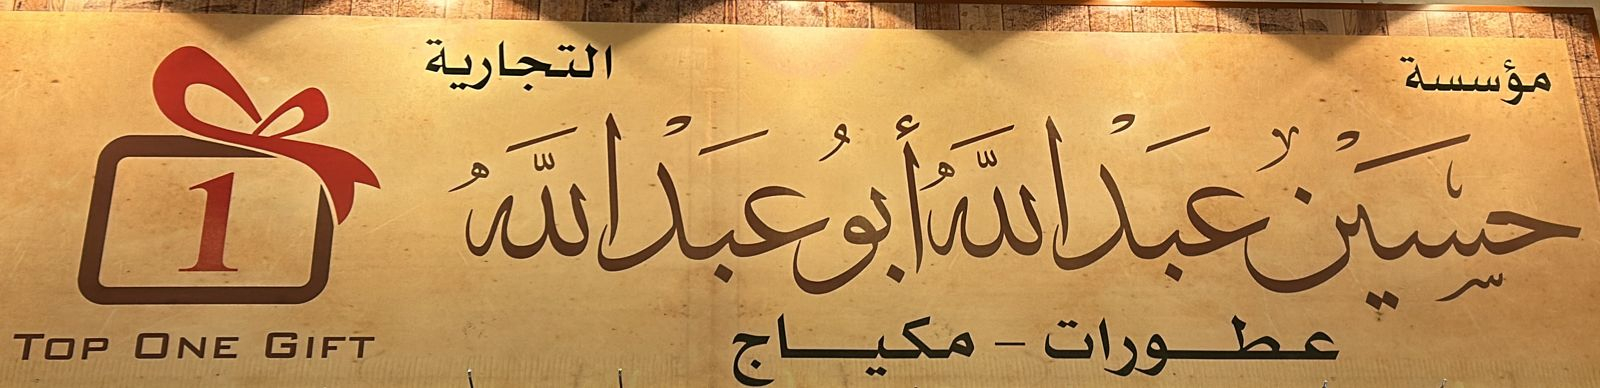 مؤسسة التجارية
حسين عبدالله أبو عبدالله
عطورات - مكياج
1
TOP ONE GIFT